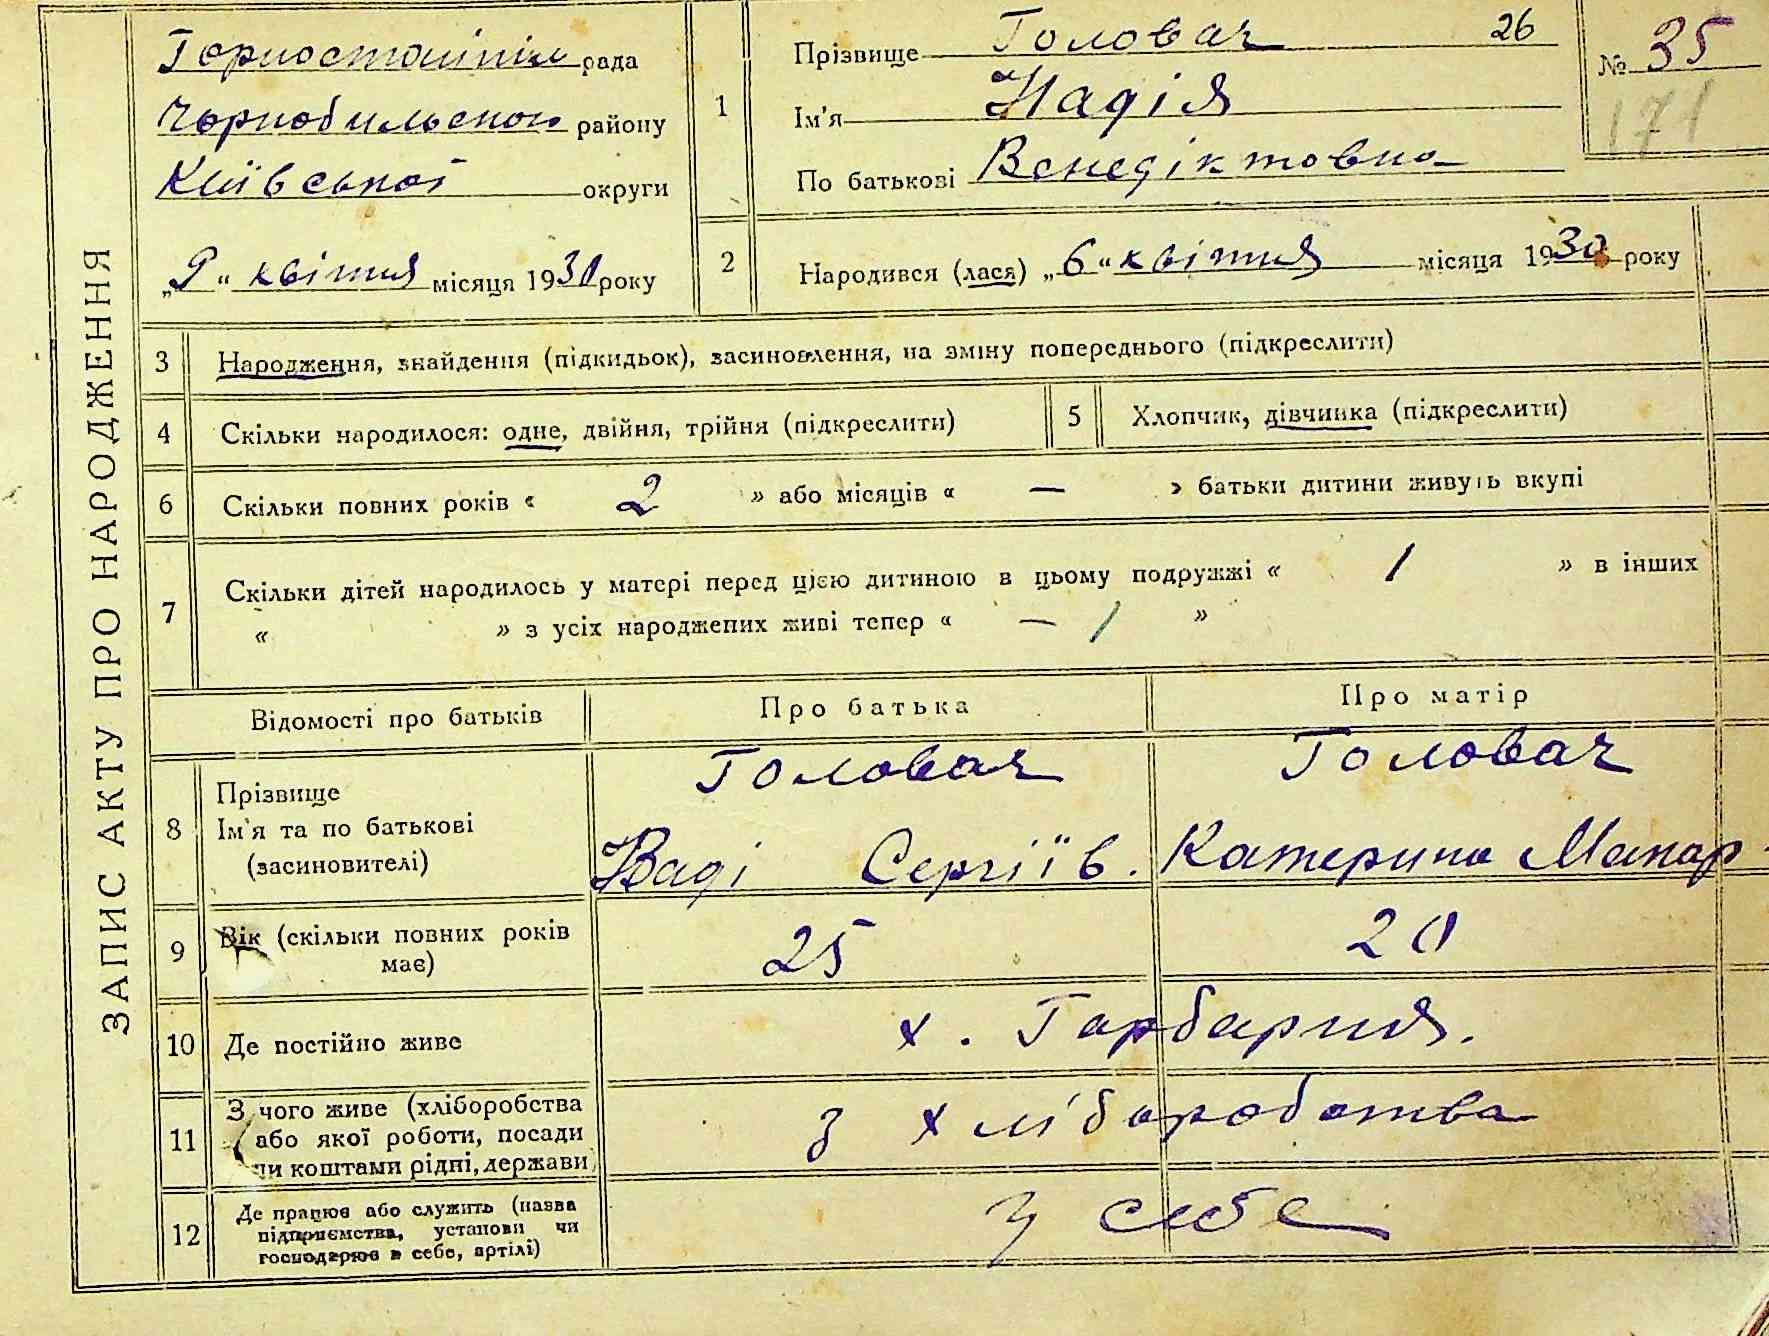 ЗАПИС АКТУ ПРО НАРОДЖЕННЯ
Горностайпіль рада
Чорнобильського району
Київської округи
„9“ квітня місяця 1930 року
1
Прізвище Головач 26
Ім'я Надія
По батькові Венедіктовна
№ 35
171
2
Народився (лася) „6“ квітня місяця 1930 року
3 Народження, знайдення (підкидьок), засиновлення, на зміну попереднього (підкреслити)
4 Скільки народилося: одне, двійня, трійня (підкреслити)
5 Хлопчик, дівчинка (підкреслити)
6 Скільки повних років « 2 » або місяців « — » батьки дитини живуть вкупі
7 Скільки дітей народилось у матері перед цією дитиною в цьому подружжі « 1 » в інших
« » з усіх народжених живі тепер « — 1 »
Відомості про батьків Про батька Про матір
8 Прізвище
Ім'я та по батькові
(засиновителі)
Головач
Сергіїв.
Головач
Катерина Макар
9 Вік (скільки повних років має)
25
20
10 Де постійно живе
х. Гарбарня.
11 З чого живе (хліборобства
або якої роботи, посади
чи коштами рідні, держави)
З хліборобства
12 Де працює або служить (назва
підприємства, установи чи
господарює в себе, артілі)
У себе